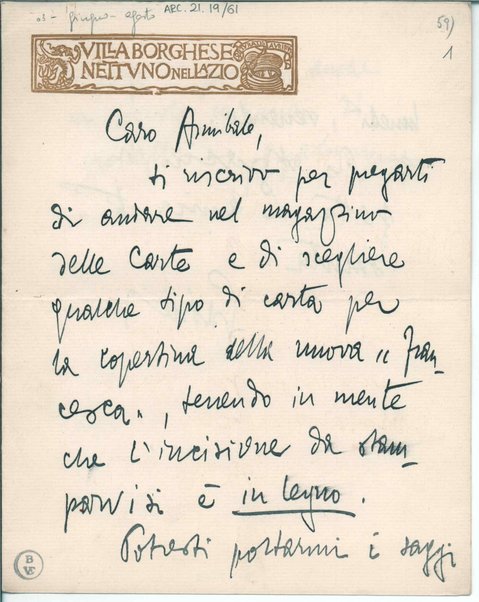 03 - giugno - agosto
ARC. 21. 19/61
59)
1
VILLA BORGHESE
NETTVNO NEL LAZIO
Caro Annibale,
ti riscrivo per pregarti
di andare nel magazzino
delle Carte e di scegliere
qualche tipo di carta per
la copertina della nuova "Fran-
cesca", tenendo in mente
che l'incisione da stam-
parvisi è in legno.
Potresti portarmi i saggi
B
VE